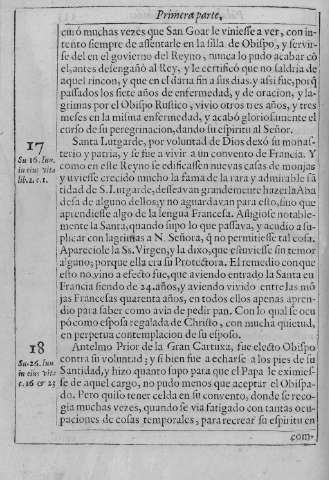 Primera parte,
curó muchas vezes que San Goar le viniesse a ver, con in-
tento siempre de assentarle en la silla de Obispo, y servir-
se del en el govierno del Reyno, nunca lo pudo acabar cõ
el, antes desengañó al Rey, y le certificó que no saldria de
aquel rincon, y que en el daria fin a sus dias. y assi fue, porq̃
passados los siete años de enfermedad, y de oracion, y la-
grimas por el Obispo Rustico, vivio otros tres años, y tres
meses en la misma enfermedad, y acabó gloriosamente el
curso de su peregrinacion, dando su espiritu al Señor.
17
Su 16. Iun.
in eius vita
lib. 2. c. 1.
Santa Lutgarde, por voluntad de Dios dexó su monas-
terio y patria, y se fue a vivir a un convento de Francia. Y
como en este Reyno se edificassen nuevas casas de monjas
y uviesse crecido mucho la fama de la rara y admirable sã
tidad de S. Lutgarde, desseavan grandemente hazerla Aba
desa de alguno dellos; y no aguardavan para esto, sino que
aprendiesse algo de la lengua Francesa. Afligiose notable-
mente la Santa, quando supo lo que passava, y acudio a su-
plicar con lagrimas a N. Señora, q̃ no permitiesse tal cosa.
Apareciole la Ss. Virgen, y la dixo, que estuviesse sin temor
alguno; porque ella era su Protectora. El remedio conque
esto no vino a efecto fue, que aviendo entrado la Santa en
Francia siendo de 24. años, y aviendo vivido entre las mõ
jas Francesas quarenta años, en todos ellos apenas apren-
dio para saber como avia de pedir pan. Con lo qual se ocu
pó como esposa regalada de Christo, con mucha quietud,
en perpetua contemplacion de su esposo.
18
Su. 26. Iun
in eius vita
c. 16 & 23
Antelmo Prior de la Gran Cartuxa, fue electo Obispo
contra su voluntad; y si bien fue a echarse a los pies de su
Santidad, y hizo quanto supo para que el Papa le eximies-
se de aquel cargo, no pudo menos que aceptar el Obispa-
do. Pero quiso tener celda en su convento, donde se reco-
gia muchas vezes, quando se via fatigado con tantas ocu-
paciones de cosas temporales, para recrear su espiritu en
com-